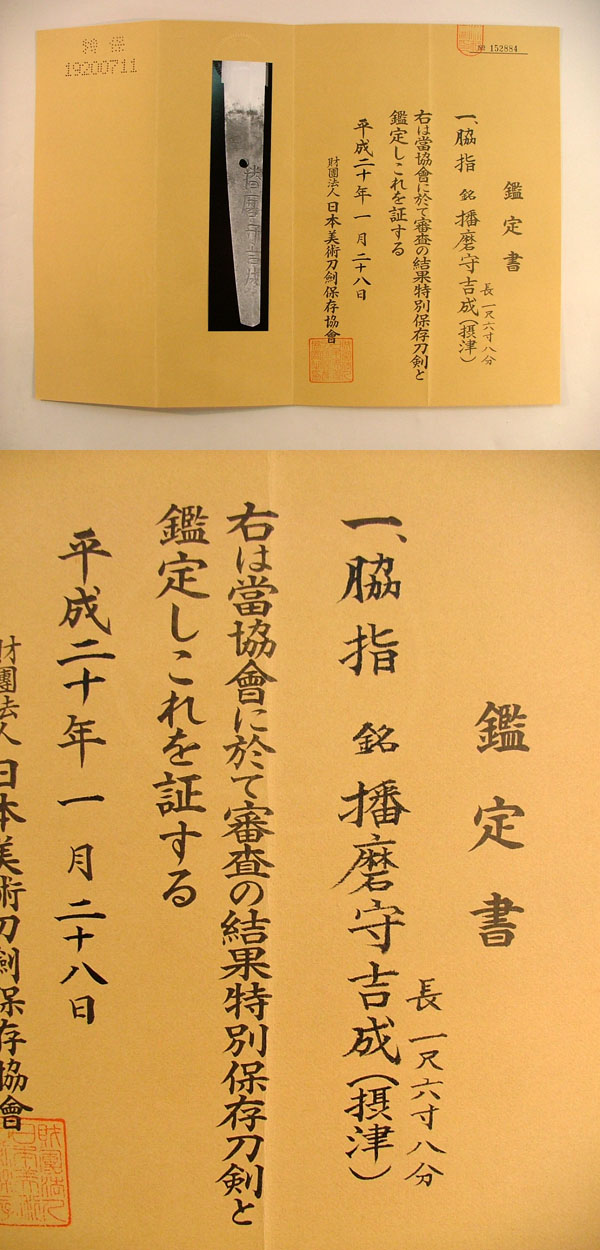 19200711
№ 152884
鑑定書
一、脇指 銘 播磨守吉成(摂津)
長 一尺六寸八分
右は當協會に於て審査の結果特別保存刀剣と
鑑定しこれを証する
平成二十年一月二十八日
財團法人 日本美術刀剣保存協會
播磨守吉成
鑑定書
一、脇指 銘 播磨守吉成(摂津)
長 一尺六寸八分
右は當協會に於て審査の結果特別保存刀剣と
鑑定しこれを証する
平成二十年一月二十八日
財團法人 日本美術刀剣保存協會